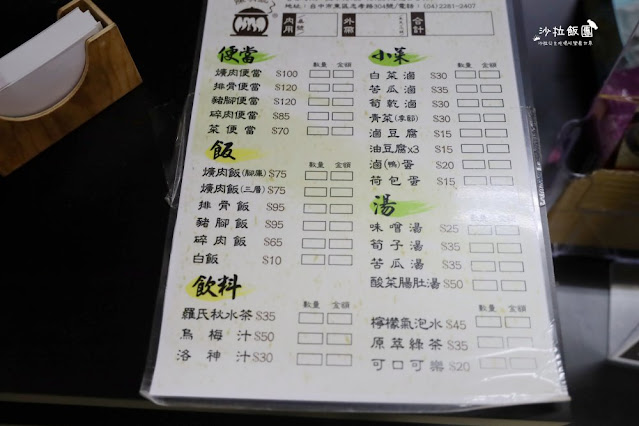 沙拉飯團
地址:台中市東區忠孝路304號/電話:(04)2281-2407
內用 外帶 合計
便當 數量 金額
爌肉便當 $100
排骨便當 $120
豬腳便當 $120
碎肉便當 $85
菜便當 $70
飯 數量 金額
爌肉飯(腳庫) $75
爌肉飯(三層) $75
排骨飯 $95
豬腳飯 $95
碎肉飯 $65
白飯 $10
飲料 數量 金額
羅氏秋水茶 $35
烏梅汁 $50
洛神汁 $30
小菜 數量 金額
白菜滷 $30
苦瓜滷 $35
筍乾滷 $30
青菜(季節) $30
滷豆腐 $15
油豆腐x3 $15
滷(鴨)蛋 $20
荷包蛋 $15
湯 數量 金額
味噌湯 $25
筍子湯 $35
苦瓜湯 $35
酸菜腸肚湯 $50
數量 金額
檸檬氣泡水 $45
原萃綠茶 $35
可口可樂 $20